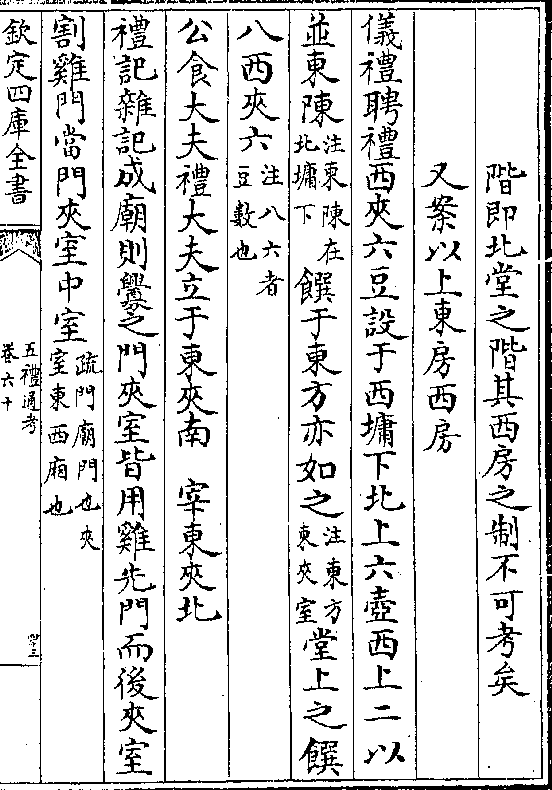 階即北堂之階其西房之制不可考矣
又案以上東房西房
儀禮聘禮西夾六豆設于西墉下北上六壺西上二以
並東陳注東陳在北墉下饌于東方亦如之注東方東夾室堂上之饌
八西夾六注八六者豆數也
公食大夫禮大夫立于東夾南　宰東夾北
禮記雜記成廟則釁之門夾室皆用雞先門而後夾室
割雞門當門夾室中室疏門廟門也夾室東西廂也
欽定四庫全書
五禮通考
卷六十
四十三